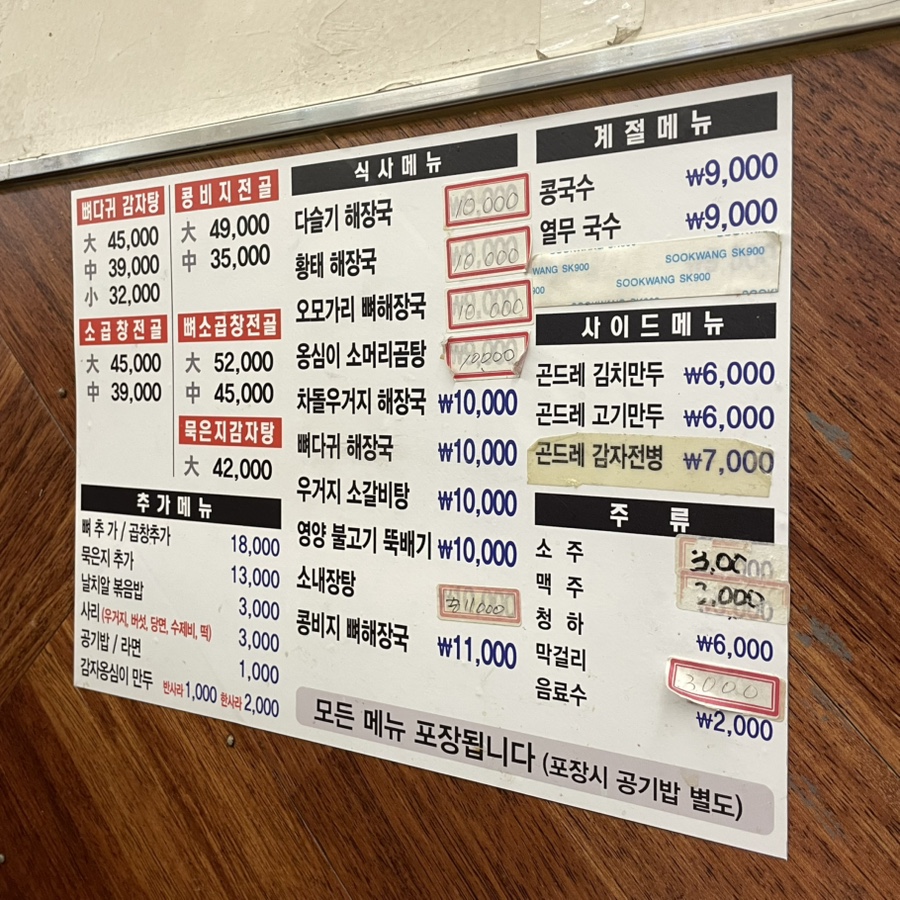 뼈다귀 감자탕
大 45,000
中 39,000
小 32,000
콩비지전골
大 49,000
中 35,000
소곱창전골
大 45,000
中 39,000
뼈소곱창전골
大 52,000
中 45,000
묵은지감자탕
大 42,000
추가메뉴
뼈추가/곱창추가 18,000
묵은지 추가 13,000
날치알 볶음밥 3,000
사리 (우거지, 버섯, 당면, 수제비, 떡) 3,000
공기밥 / 라면 1,000
감자옹심이 만두 반사라 1,000 한사라 2,000
식사메뉴
다슬기 해장국 10,000
황태 해장국 10,000
오모가리 뼈해장국 10,000
옹심이 소머리곰탕 10,000
차돌우거지 해장국 ₩10,000
뼈다귀 해장국 ₩10,000
우거지 소갈비탕 ₩10,000
영양 불고기 뚝배기 ₩10,000
소내장탕 11000
콩비지 뼈해장국 ₩11,000
계절메뉴
콩국수 ₩9,000
열무 국수 ₩9,000
SOOKWANG SK900
WANG SK900
SOOKWANG SK900
사이드메뉴
곤드레 김치만두 ₩6,000
곤드레 고기만두 ₩6,000
곤드레 감자전병 ₩7,000
주류
소주
맥주
청하 ₩6,000
막걸리 3000
음료수 ₩2,000
모든 메뉴 포장됩니다 (포장시 공기밥 별도)